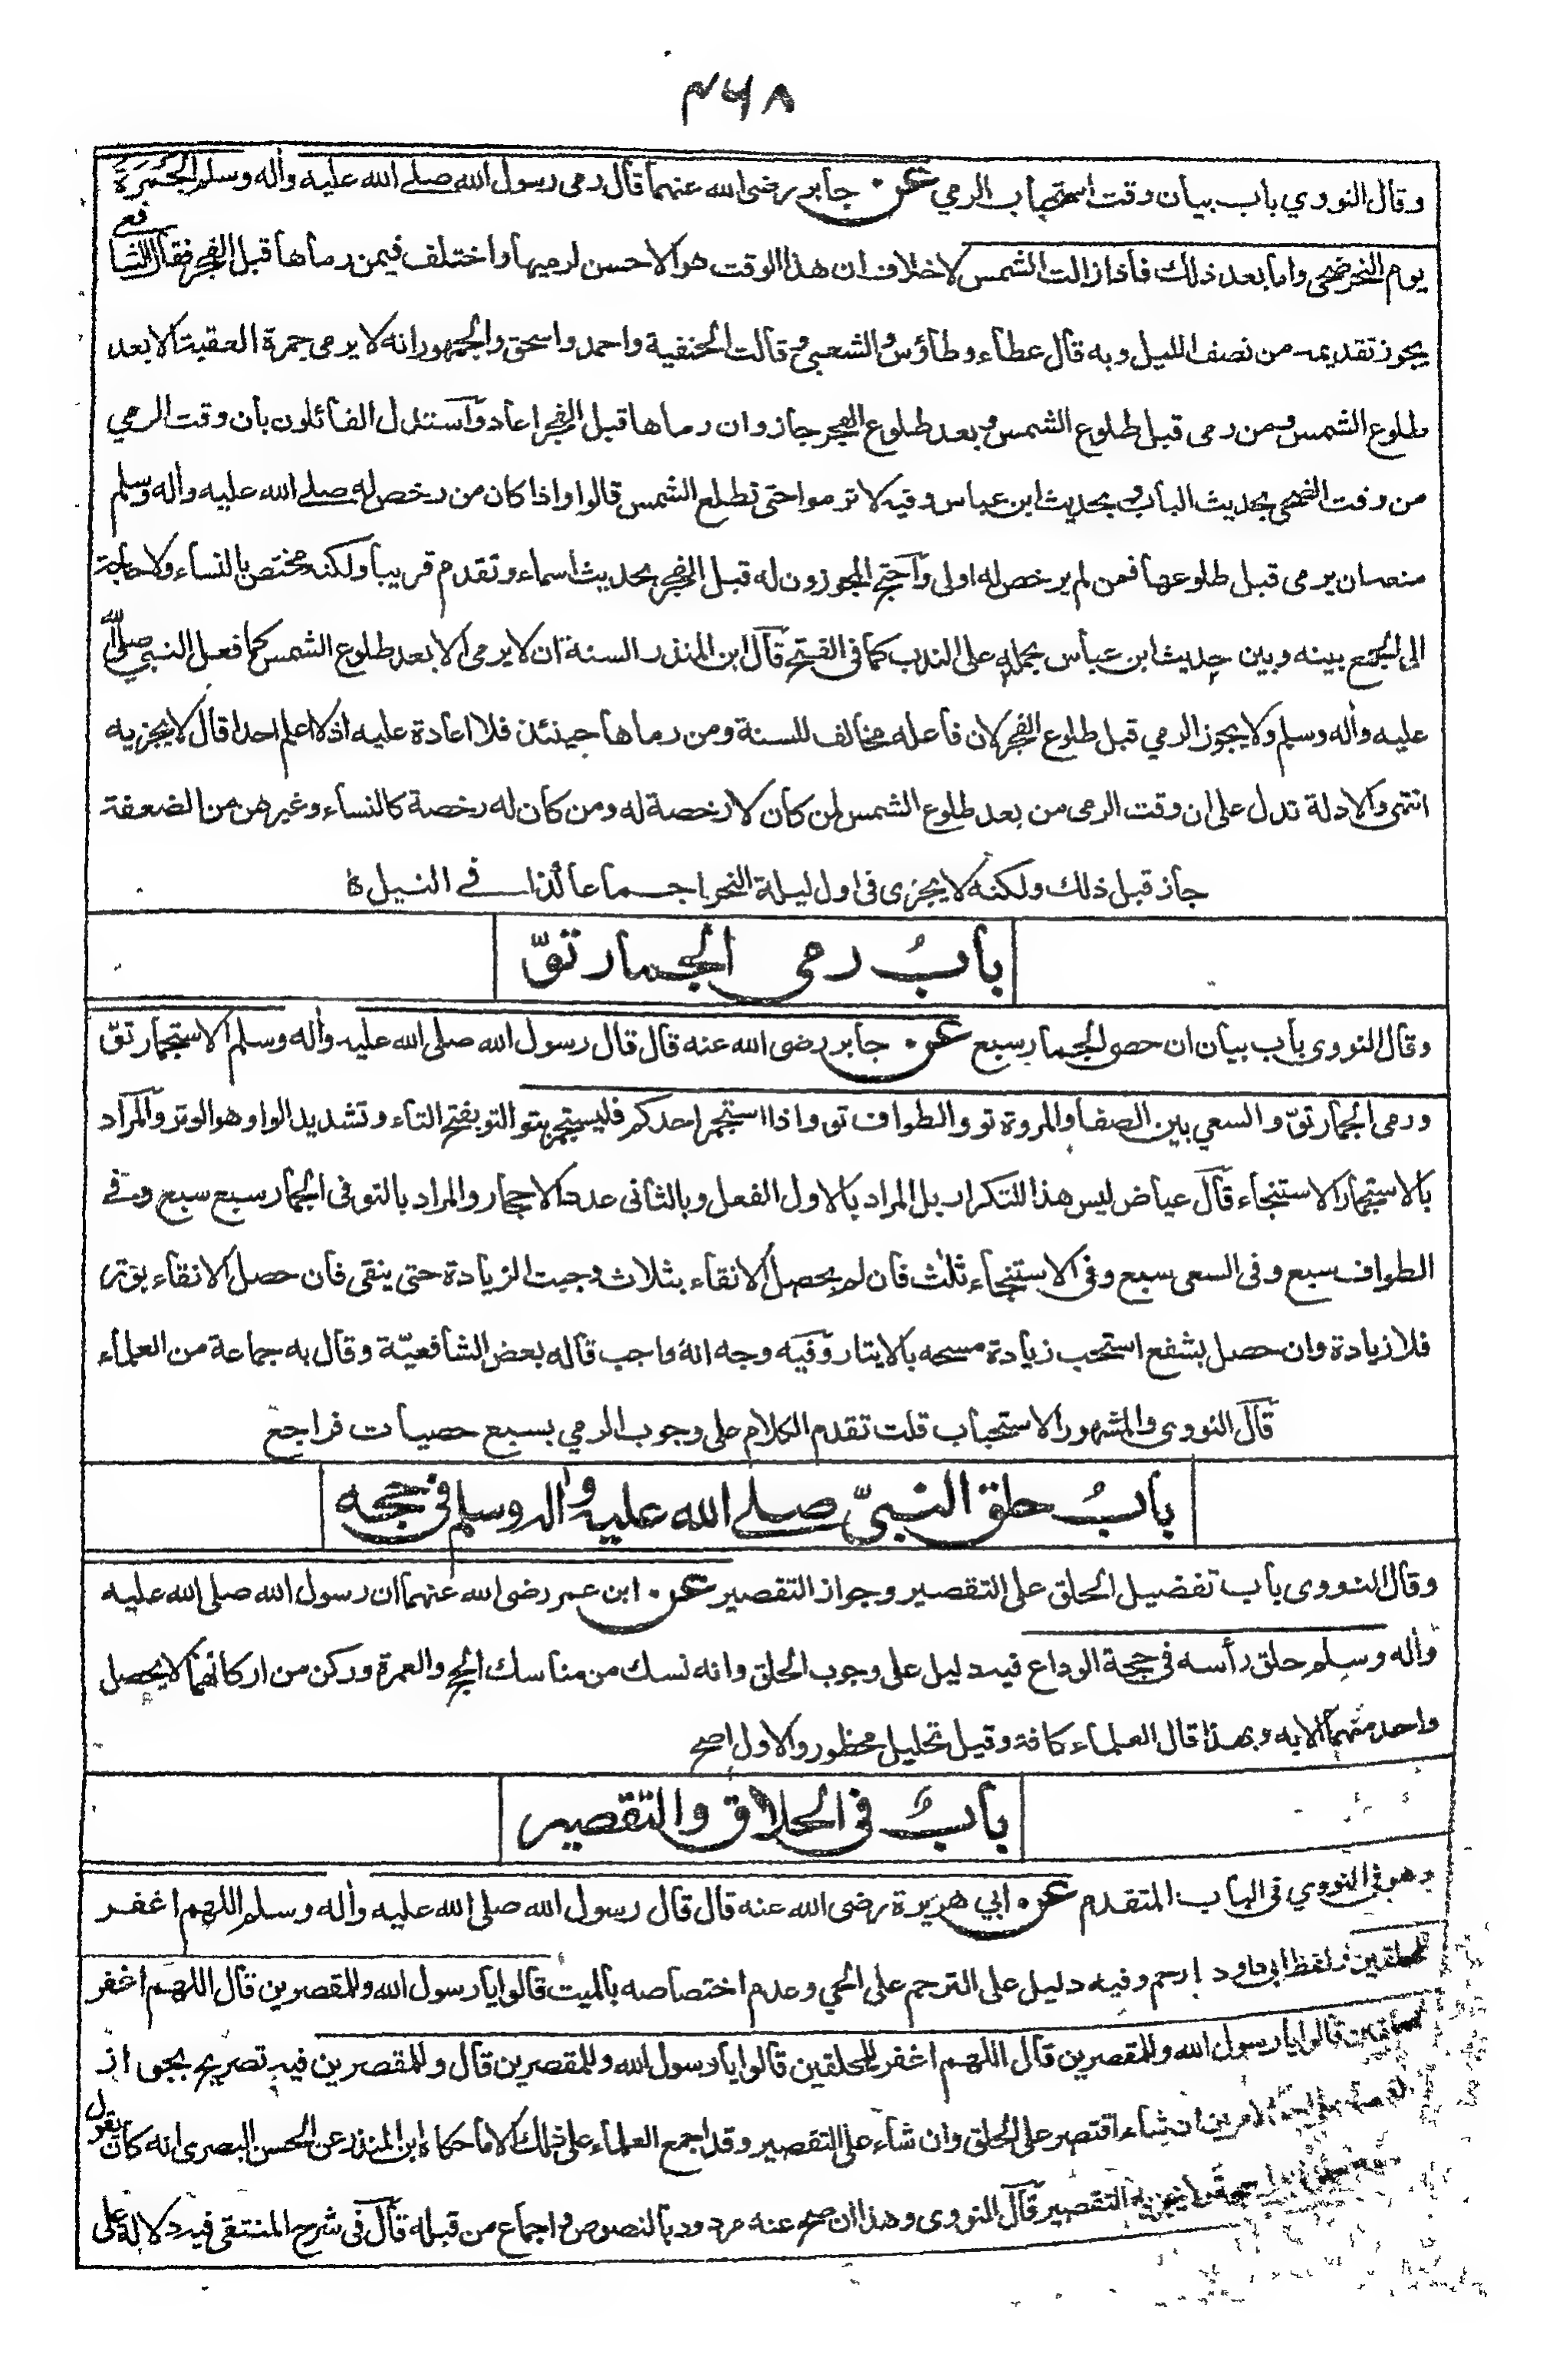 ۴۶۸
وقال النووي باب بيان وقت استحباب الرمي عن جابر رضى الله عنهما قال رمى رسول الله صلے الله عليه واٰله وسلم الجمرة
يوم النحر ضحى واما بعد ذلك فاذا زالت الشمس لا خلاف ان هذا الوقت هو الاحسن لرميها واختلف فيمن رماها قبل الفجر فقال الشافعي
يجوز تقديمه من نصف الليل وبه قال عطاء وطاؤس والشعبي وقالت الحنفية واحمد واسحق والجمهور انه لا يرمى جمرة العقبة الا بعد
طلوع الشمس ومن رمى قبل طلوع الشمس وبعد طلوع الفجر جاز وان رماها قبل الفجر اعاد واستدل القائلون بان وقت الرمي
من وقت الضحى بحديث الباب وبحديث ابن عباس وفيه لا ترموا حتى تطلع الشمس قالوا واذا كان من رخص له صلے الله عليه واٰله وسلم
منعه ان يرمى قبل طلوعها فمن لم يرخص له اولى واحتج المجوزون له قبل الفجر بحديث اسماء وتقدم قريبا ولكنه مختص بالنساء ولا حاجة
الى الجمع بينه وبين حديث ابن عباس بحمله على الندب كما فى الفتح قال ابن المنذر السنة ان لا يرمى الا بعد طلوع الشمس كما فعل النبي صلى الله
عليه واٰله وسلم ولا يجوز الرمي قبل طلوع الفجر لان فاعله مخالف للسنة ومن رماها حينئذ فلا اعادة عليه اذ لا اعلم احدا قال لا يجزيه
انتهى والادلة تدل على ان وقت الرمى من بعد طلوع الشمس لمن كان لا رخصة له ومن كان له رخصة كالنساء وغيرهن من الضعفة
جاز قبل ذلك ولكنه لا يجزى فى اول ليلة النحر اجماعا كذا فے النيل
بابُ رمى الجمار توّ
وقال النووى باب بيان ان حصى الجمار سبع عن جابر رضى الله عنه قال قال رسول الله صلى الله عليه واٰله وسلم الاستجمار توّ
ورمى الجمار توّ والسعي بين الصفا والمروة تو والطواف تو واذا استجمر احدكم فليستجمر بتو التو بفتح التاء وتشديد الواو هو الوتر والمراد
بالاستجمار الاستنجاء قال عياض ليس هذا للتكرار بل المراد بالاول الفعل وبالثانى عدد الاحجار والمراد بالتو فى الجمار سبع سبع وفے
الطواف سبع وفى السعى سبع وفى الاستنجاء ثلٰث فان لم يحصل الانقاء بثلاث وجبت الزيادة حتى ينقى فان حصل الانقاء بوتر
فلا زيادة وان حصل بشفع استحب زيادة مسحه بالايتار وفيه وجه انه واجب قاله بعض الشافعيّة وقال به جماعة من العلماء
قال النووى والمشهور الاستحباب قلت تقدم الكلام على وجوب الرمي بسبع حصيات فراجع
بابُ حلق النبىّ صلے الله عليه واٰله وسلم فى حجه
وقال النووى باب تفضيل الحلق على التقصير وجواز التقصير عن ابن عمر رضى الله عنهما ان رسول الله صلى الله عليه
واٰله وسلم حلق رأسه فى حجة الوداع فيه دليل على وجوب الحلق وانه نسك من مناسك الحج والعمرة وركن من اركانهما لا يحصل
واحد منهما الا به وبهذا قال العلماء كافة وقيل تحليل محظور والاول اصح
بابٌ فى الحلاق والتقصير
وهو فى النووي فى الباب المتقدم عن ابي هريرة رضى الله عنه قال قال رسول الله صلى الله عليه واٰله وسلم اللهم اغفر
للمحلقين ولفظ ابى داود ارحم وفيه دليل على الترحم على الحي وعدم اختصاصه بالميت قالوا يا رسول الله وللمقصرين قال اللهم اغفر
للمحلقين قالوا يا رسول الله وللمقصرين قال اللهم اغفر للمحلقين قالوا يا رسول الله وللمقصرين قال وللمقصرين فيه تصريح بجواز
الامرين ان شاء اقتصر على الحلق وان شاء على التقصير وقد اجمع العلماء على ذلك الا ما حكاه ابن المنذر عن الحسن البصرى انه كان يقول
التقصير قال النووى وهذا ان صح عنه مردود بالنصوص واجماع من قبله قال فى شرح المنتقى فيه دلالة على